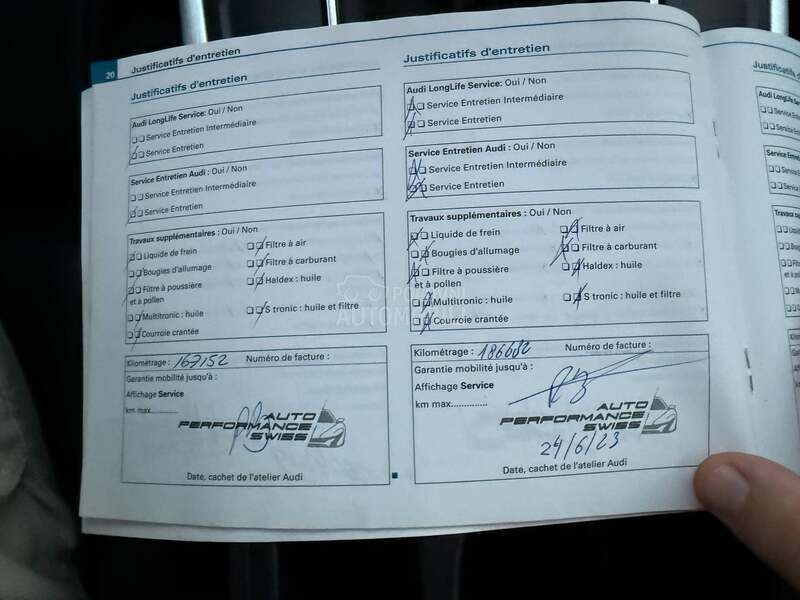 20
Justificatifs d'entretien
Justificatifs d'entretien
Audi LongLife Service: Oui / Non
Service Entretien Intermédiaire
Service Entretien
Service Entretien Audi : Oui / Non
Service Entretien Intermédiaire
Service Entretien
Travaux supplémentaires : Oui / Non
Liquide de frein
Filtre à air
Bougies d'allumage
Filtre à carburant
Filtre à poussière
et à pollen
Haldex : huile
Multitronic : huile
S tronic : huile et filtre
Courroie crantée
Kilométrage : 167152 Numéro de facture :
Garantie mobilité jusqu'à :
Affichage Service
km max..............
AUTO
PERFORMANCE
SWISS
Date, cachet de l'atelier Audi
Justificatifs d'entretien
Audi LongLife Service: Oui / Non
Service Entretien Intermédiaire
Service Entretien
Service Entretien Audi : Oui / Non
Service Entretien Intermédiaire
Service Entretien
Travaux supplémentaires : Oui / Non
Liquide de frein
Filtre à air
Bougies d'allumage
Filtre à carburant
Filtre à poussière
et à pollen
Haldex : huile
Multitronic : huile
S tronic : huile et filtre
Courroie crantée
Kilométrage : 186682 Numéro de facture :
Garantie mobilité jusqu'à :
Affichage Service
km max..............
AUTO
PERFORMANCE
SWISS
24/6/23
Date, cachet de l'atelier Audi
Justificatifs d'en
Justificatifs
Audi LongLife Ser
Service Entre
Service Entre
Service Entretien
Service Ent
Service Ent
Travaux supplém
Liquide de
Bougies d
Filtre à po
et à pollen
Multitron
Courroie
Kilométrage
Garantie mo
Affichage Se
km max